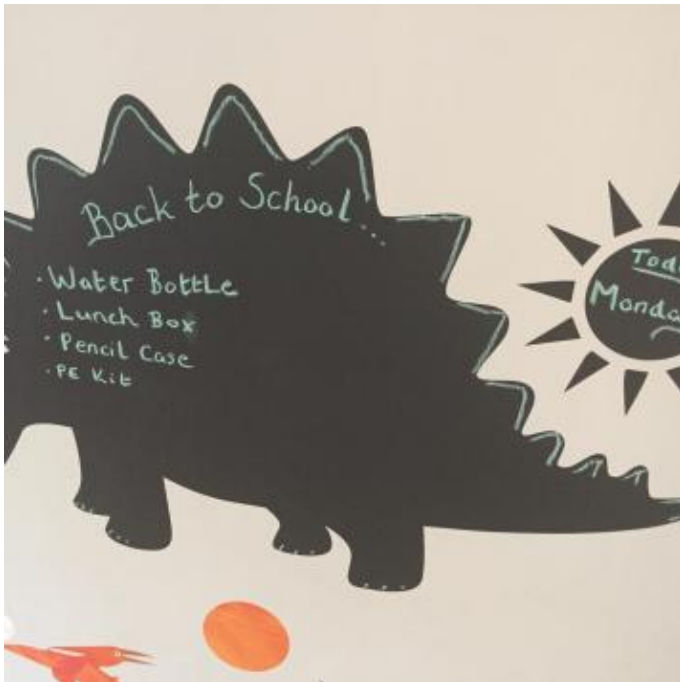 Back to School...
· Water Bottle
· Lunch Box
· Pencil Case
· PE Kit